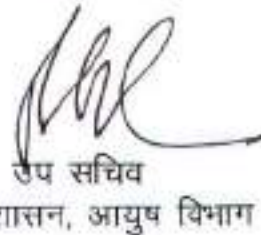 उप सचिव
शासन, आयुष विभाग